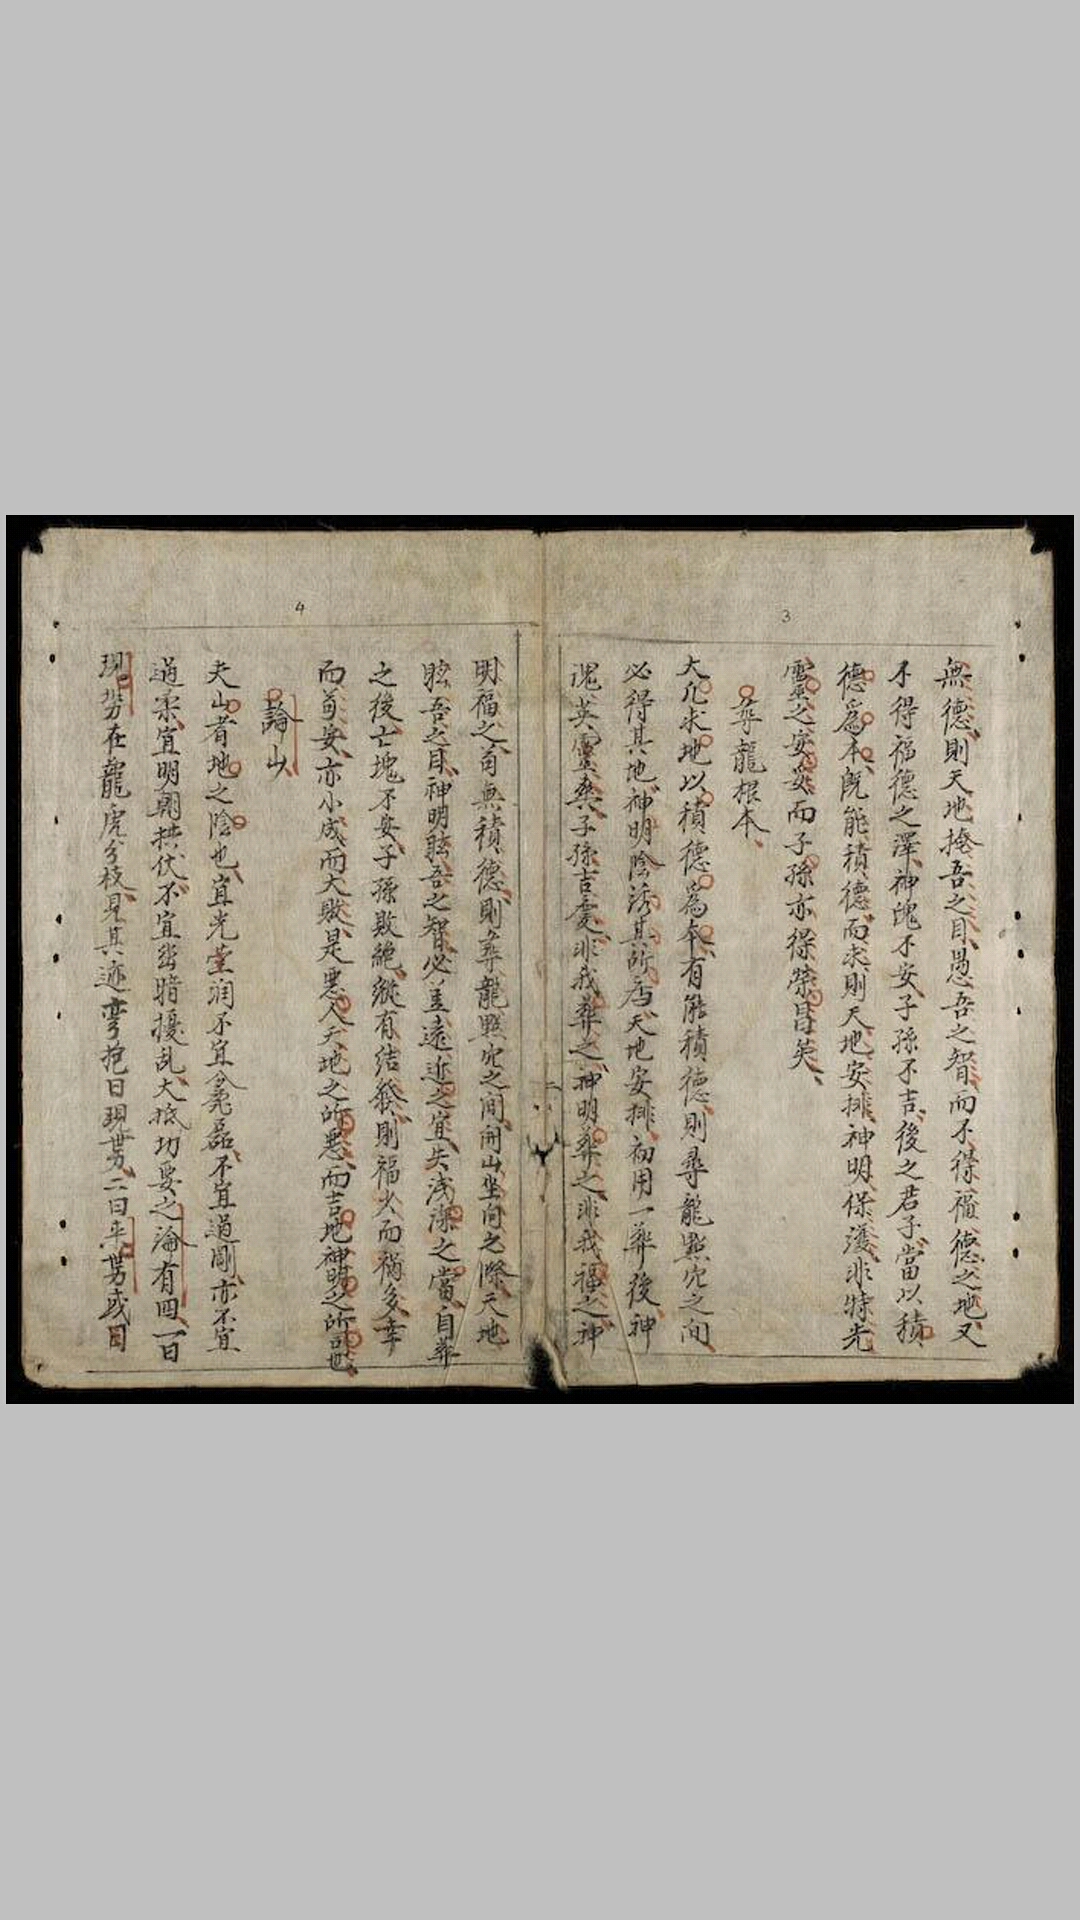 3
無德則天地掩吾之目愚吾之智而不得福德之地又
不得福德之澤神魄不安子孫不吉後之君子當以積
德爲本旣能積德而求則天地安排神明保護非特先
靈之安妥而子孫亦得榮昌矣
尋龍根本
大凢求地以積德為本有能積德則尋龍點穴之間
必得其地神明陰誘其所居天地安排初用一葬後神
魂英靈矣子孫吉慶非我葬之神明葬之非我福之神
4
明福之苟無積德則尋龍點穴之間開山坐向之際天地
眩吾之目神明眩吾之智必差遠近之宜失浅深之當自葬
之後亡塊不安子孫敗絕縱有結發則福少而禍多幸
而苟安亦小成而大敗是惡人天地之所惡而吉地神明之所司也
論山
夫山者地之陰也宜光瑩润不宜麄磊不宜過剛亦不宜
過柔宜明朗拱伏不宜幽暗擾乱大抵功要之論有四一曰
現勢在龍虎分枝見其迹彎抱曰現势二曰来势或目